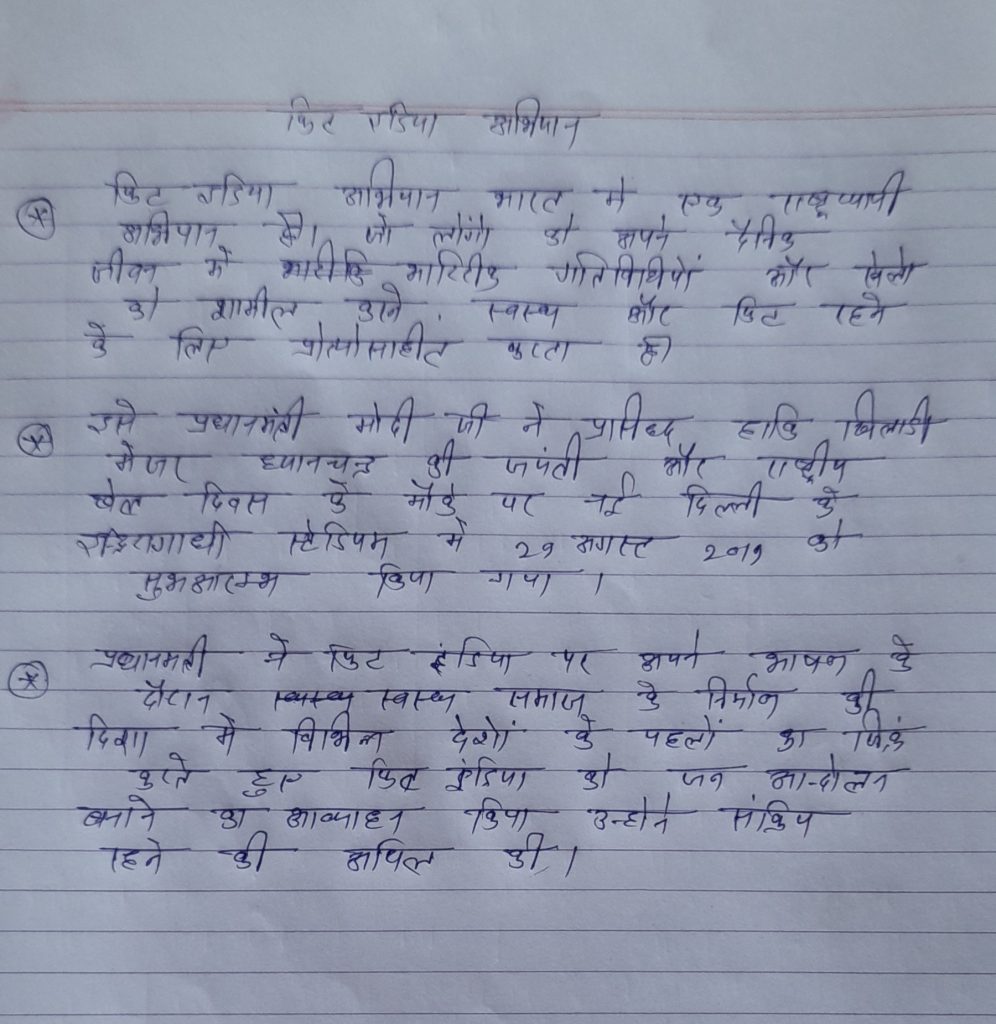 फिट एडिया अभियान
फिट एडिया अभियान भारत मे एक राष्ट्रव्यापी
अभियान है। जो लोगो को अपने दैनिक
जीवन में शारीरिक गतिविधियों और खेलो
को शामील करने, स्वस्थ और फिट रहने
के लिए प्रोत्योसाहीट करता है।
इसे प्रधानमंत्री मोदी जी ने प्रसिध्द हाकि खिलाडी
मेजर ध्यानचन्द्र की जयंती और राष्ट्रीय
खेल दिवस के मौके पर नई दिल्ली के
स्टेडियम में 29 अगस्ट 2019 को
किया गया ।
प्रधानमंत्री ने फिट इंडिया पर अपने भाषन के
दौरान स्वस्थ्य स्वस्थ समाज के निर्माण की
दिशा में विभिन्न देशों के पहलों का जिक्रं
करते हुए फिट इंडिया को जन आन्दोलन
बनाने का आव्याहन किया उन्होने सक्रिय
रहने की अपिल की।